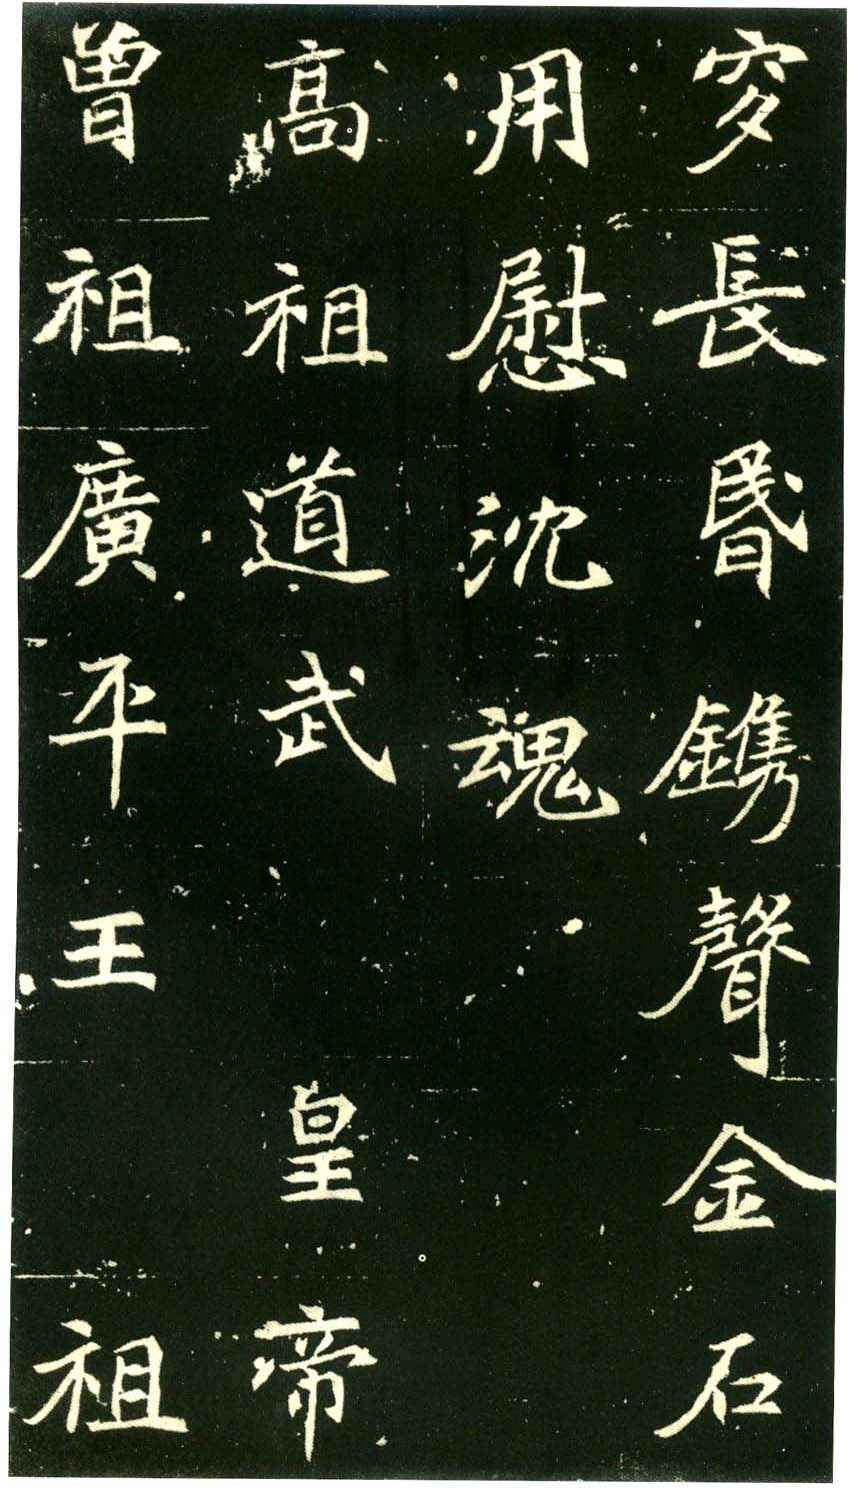 穸長昏鐫聲金石
用慰沈魂
高祖道武 皇帝
曾祖廣平王 祖